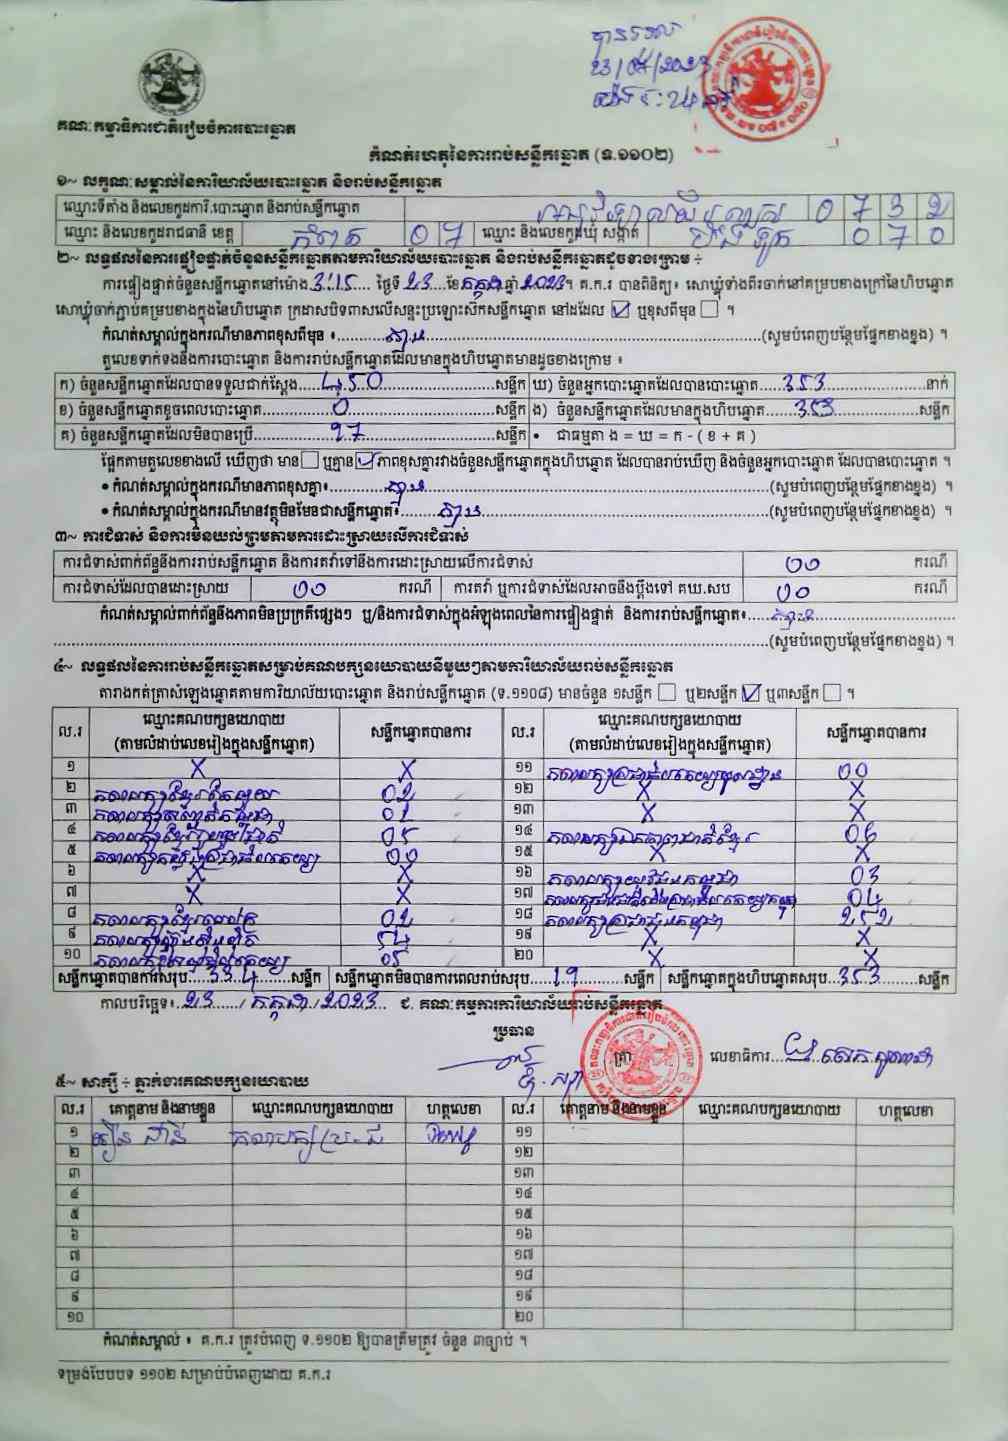 បានទទួល
23/07/2023
គណៈកម្មាធិការជាតិរៀបចំការបោះឆ្នោត
កំណត់ហេតុនៃការរាប់សន្លឹកឆ្នោត (ទ.១១០២)
១~ លក្ខណៈសម្គាល់នៃការិយាល័យបោះឆ្នោត និងរាប់សន្លឹកឆ្នោត
ឈ្មោះទីតាំង និងលេខកូដការិ.បោះឆ្នោត និងរាប់សន្លឹកឆ្នោត 0 7 3 2
ឈ្មោះ និងលេខកូដរាជធានី ខេត្ត កំពត 0 7 ឈ្មោះ និងលេខកូដឃុំ សង្កាត់ 0 7 0
២~ លទ្ធផលនៃការផ្ទៀងផ្ទាត់ចំនួនសន្លឹកឆ្នោតតាមការិយាល័យបោះឆ្នោត និងរាប់សន្លឹកឆ្នោតដូចខាងក្រោម ÷
ការផ្ទៀងផ្ទាត់ចំនួនសន្លឹកឆ្នោតនៅម៉ោង 3:15 ថ្ងៃទី 23 ខែ កក្កដា ឆ្នាំ 2023 ។ គ.ក.រ បានពិនិត្យ៖ សោឃ្មុំទាំងពីរចាក់នៅគម្របខាងក្រៅនៃហិបឆ្នោត
សោឃ្មុំចាក់ភ្ជាប់គម្របខាងក្នុងនៃហិបឆ្នោត ក្រដាសបិទពាសលើសន្ទះប្រឡោះស៊កសន្លឹកឆ្នោត នៅដដែល ☑ ឬខុសពីមុន ☐ ។
កំណត់សម្គាល់ក្នុងករណីមានភាពខុសពីមុន ៖ គ្មាន (សូមបំពេញបន្ថែមផ្នែកខាងខ្នង) ។
តួលេខទាក់ទងនឹងការបោះឆ្នោត និងការរាប់សន្លឹកឆ្នោតដែលមានក្នុងហិបឆ្នោតមានដូចខាងក្រោម ៖
ក) ចំនួនសន្លឹកឆ្នោតដែលបានទទួលជាក់ស្តែង 450 សន្លឹក ឃ) ចំនួនអ្នកបោះឆ្នោតដែលបានបោះឆ្នោត 353 នាក់
ខ) ចំនួនសន្លឹកឆ្នោតខូចពេលបោះឆ្នោត 0 សន្លឹក ង) ចំនួនសន្លឹកឆ្នោតដែលមានក្នុងហិបឆ្នោត 353 សន្លឹក
គ) ចំនួនសន្លឹកឆ្នោតដែលមិនបានប្រើ 97 សន្លឹក • ជាធម្មតា ង = ឃ = ក - ( ខ + គ )
ផ្អែកតាមតួលេខខាងលើ ឃើញថា មាន ☐ ឬគ្មាន ☑ ភាពខុសគ្នារវាងចំនួនសន្លឹកឆ្នោតក្នុងហិបឆ្នោត ដែលបានរាប់ឃើញ និងចំនួនអ្នកបោះឆ្នោត ដែលបានបោះឆ្នោត ។
• កំណត់សម្គាល់ក្នុងករណីមានភាពខុសគ្នា៖ គ្មាន (សូមបំពេញបន្ថែមផ្នែកខាងខ្នង) ។
• កំណត់សម្គាល់ក្នុងករណីមានវត្ថុមិនមែនជាសន្លឹកឆ្នោត៖ គ្មាន (សូមបំពេញបន្ថែមផ្នែកខាងខ្នង) ។
៣~ ការជំទាស់ និងការមិនយល់ព្រមតាមការដោះស្រាយលើការជំទាស់
ការជំទាស់ពាក់ព័ន្ធនឹងការរាប់សន្លឹកឆ្នោត និងការតវ៉ាទៅនឹងការដោះស្រាយលើការជំទាស់ 00 ករណី
ការជំទាស់ដែលបានដោះស្រាយ 00 ករណី ការតវ៉ា ឬការជំទាស់ដែលអាចនឹងប្តឹងទៅ គឃ.សប 00 ករណី
កំណត់សម្គាល់ពាក់ព័ន្ធនឹងភាពមិនប្រក្រតីផ្សេងៗ ឬ/និងការជំទាស់ក្នុងអំឡុងពេលនៃការផ្ទៀងផ្ទាត់ និងការរាប់សន្លឹកឆ្នោត៖ គ្មាន
(សូមបំពេញបន្ថែមផ្នែកខាងខ្នង) ។
៤~ លទ្ធផលនៃការរាប់សន្លឹកឆ្នោតសម្រាប់គណបក្សនយោបាយនីមួយៗតាមការិយាល័យរាប់សន្លឹកឆ្នោត
តារាងកត់ត្រាសំឡេងឆ្នោតតាមការិយាល័យបោះឆ្នោត និងរាប់សន្លឹកឆ្នោត (ទ.១១០៨) មានចំនួន ១សន្លឹក ☐ ឬ២សន្លឹក ☑ ឬ៣សន្លឹក ☐ ។
ល.រ ឈ្មោះគណបក្សនយោបាយ (តាមលំដាប់លេខរៀងក្នុងសន្លឹកឆ្នោត) សន្លឹកឆ្នោតបានការ ល.រ ឈ្មោះគណបក្សនយោបាយ (តាមលំដាប់លេខរៀងក្នុងសន្លឹកឆ្នោត) សន្លឹកឆ្នោតបានការ
១ X X ១១ 00
២ គណបក្សខ្មែរតែមួយ 02 ១២ X X
៣ 01 ១៣ X X
៤ គណបក្សខ្មែររួបរួមជាតិ 05 ១៤ គណបក្សឯកភាពជាតិខ្មែរ 06
៥ 00 ១៥ X X
៦ X X ១៦ គណបក្សយុវជនកម្ពុជា 03
៧ X X ១៧ 04
៨ 02 ១៨ គណបក្សប្រជាជនកម្ពុជា 252
៩ គណបក្សហ៊្វុនស៊ិនប៉ិច 54 ១៩ X X
១០ 05 ២០ X X
សន្លឹកឆ្នោតបានការសរុប 334 សន្លឹក សន្លឹកឆ្នោតមិនបានការពេលរាប់សរុប 19 សន្លឹក សន្លឹកឆ្នោតក្នុងហិបឆ្នោតសរុប 353 សន្លឹក
កាលបរិច្ឆេទ៖ 23 / កក្កដា / 2023 ជ. គណៈកម្មការការិយាល័យរាប់សន្លឹកឆ្នោត
ប្រធាន
ត្រា លេខាធិការ
៥~ សាក្សី ÷ ភ្នាក់ងារគណបក្សនយោបាយ
ល.រ គោត្តនាម និងនាមខ្លួន ឈ្មោះគណបក្សនយោបាយ ហត្ថលេខា ល.រ គោត្តនាម និងនាមខ្លួន ឈ្មោះគណបក្សនយោបាយ ហត្ថលេខា
១ ១១
២ ១២
៣ ១៣
៤ ១៤
៥ ១៥
៦ ១៦
៧ ១៧
៨ ១៨
៩ ១៩
១០ ២០
កំណត់សម្គាល់ ៖ គ.ក.រ ត្រូវបំពេញ ទ.១១០២ ឱ្យបានត្រឹមត្រូវ ចំនួន ៣ច្បាប់ ។
ទម្រង់បែបបទ ១១០២ សម្រាប់បំពេញដោយ គ.ក.រ